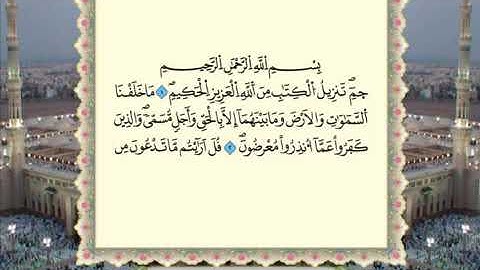 بِسْمِ اللَّهِ الرَّحْمَٰنِ الرَّحِيمِ
حمٓ ۚ تَنزِيلُ الْكِتَٰبِ مِنَ اللَّهِ الْعَزِيزِ الْحَكِيمِ ۝ مَا خَلَقْنَا
السَّمَٰوَٰتِ وَالْأَرْضَ وَمَا بَيْنَهُمَا إِلَّا بِالْحَقِّ وَأَجَلٍ مُّسَمًّى ۚ وَالَّذِينَ
كَفَرُوا عَمَّا أُنذِرُوا مُعْرِضُونَ ۝ قُلْ أَرَءَيْتُم مَّا تَدْعُونَ مِن